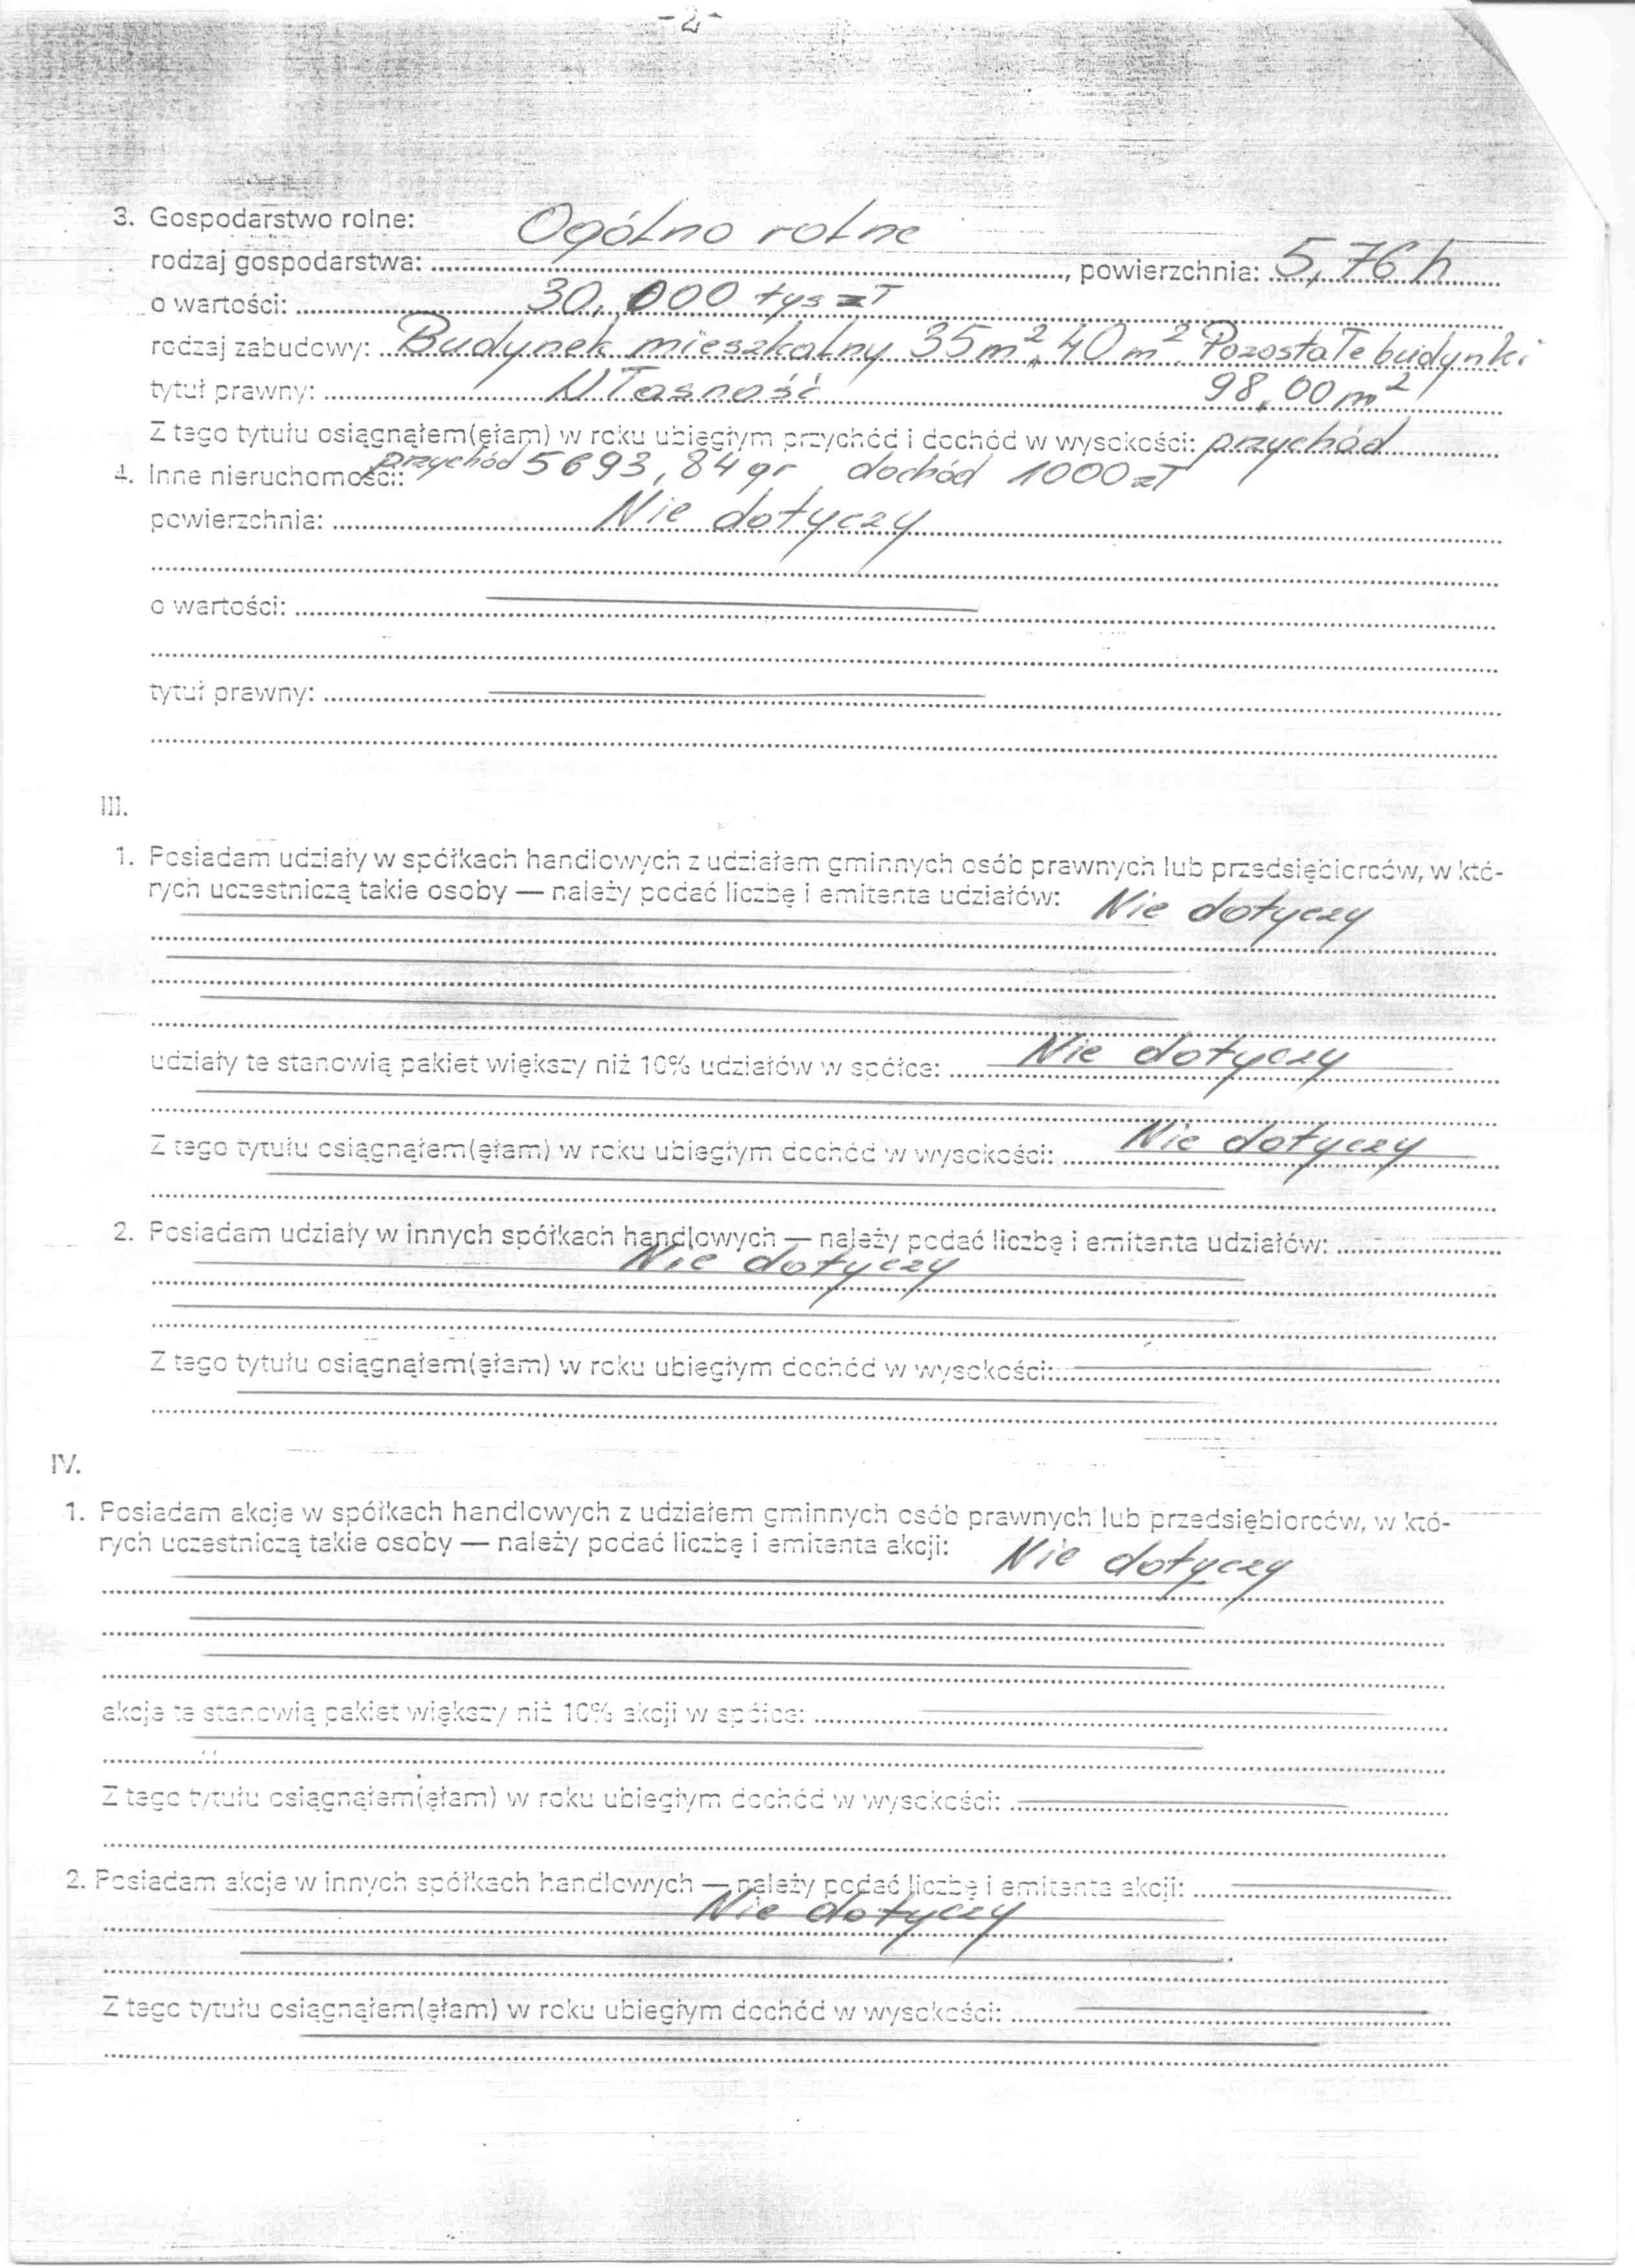 -2-
3. Gospodarstwo rolne:
rodzaj gospodarstwa: Ogólno rolne, powierzchnia: 5,76 h
o wartości: 30,000 tys zł
rodzaj zabudowy: Budynek mieszkalny 35m², 40m². Pozostałe budynki
tytuł prawny: Własność 98,00 m²
Z tego tytułu osiągnąłem(ęłam) w roku ubiegłym przychód i dochód w wysokości: przychód
4. Inne nieruchomości: przychód 5693,84 gr, dochód 1000 zł
powierzchnia: Nie dotyczy
o wartości:
tytuł prawny:
III.
1. Posiadam udziały w spółkach handlowych z udziałem gminnych osób prawnych lub przedsiębiorców, w któ-
rych uczestniczą takie osoby — należy podać liczbę i emitenta udziałów: Nie dotyczy
udziały te stanowią pakiet większy niż 10% udziałów w spółce: Nie dotyczy
Z tego tytułu osiągnąłem(ęłam) w roku ubiegłym dochód w wysokości: Nie dotyczy
2. Posiadam udziały w innych spółkach handlowych — należy podać liczbę i emitenta udziałów:
Nie dotyczy
Z tego tytułu osiągnąłem(ęłam) w roku ubiegłym dochód w wysokości:
IV.
1. Posiadam akcje w spółkach handlowych z udziałem gminnych osób prawnych lub przedsiębiorców, w któ-
rych uczestniczą takie osoby — należy podać liczbę i emitenta akcji: Nie dotyczy
akcje te stanowią pakiet większy niż 10% akcji w spółce:
Z tego tytułu osiągnąłem(ęłam) w roku ubiegłym dochód w wysokości:
2. Posiadam akcje w innych spółkach handlowych — należy podać liczbę i emitenta akcji:
Nie dotyczy
Z tego tytułu osiągnąłem(ęłam) w roku ubiegłym dochód w wysokości: